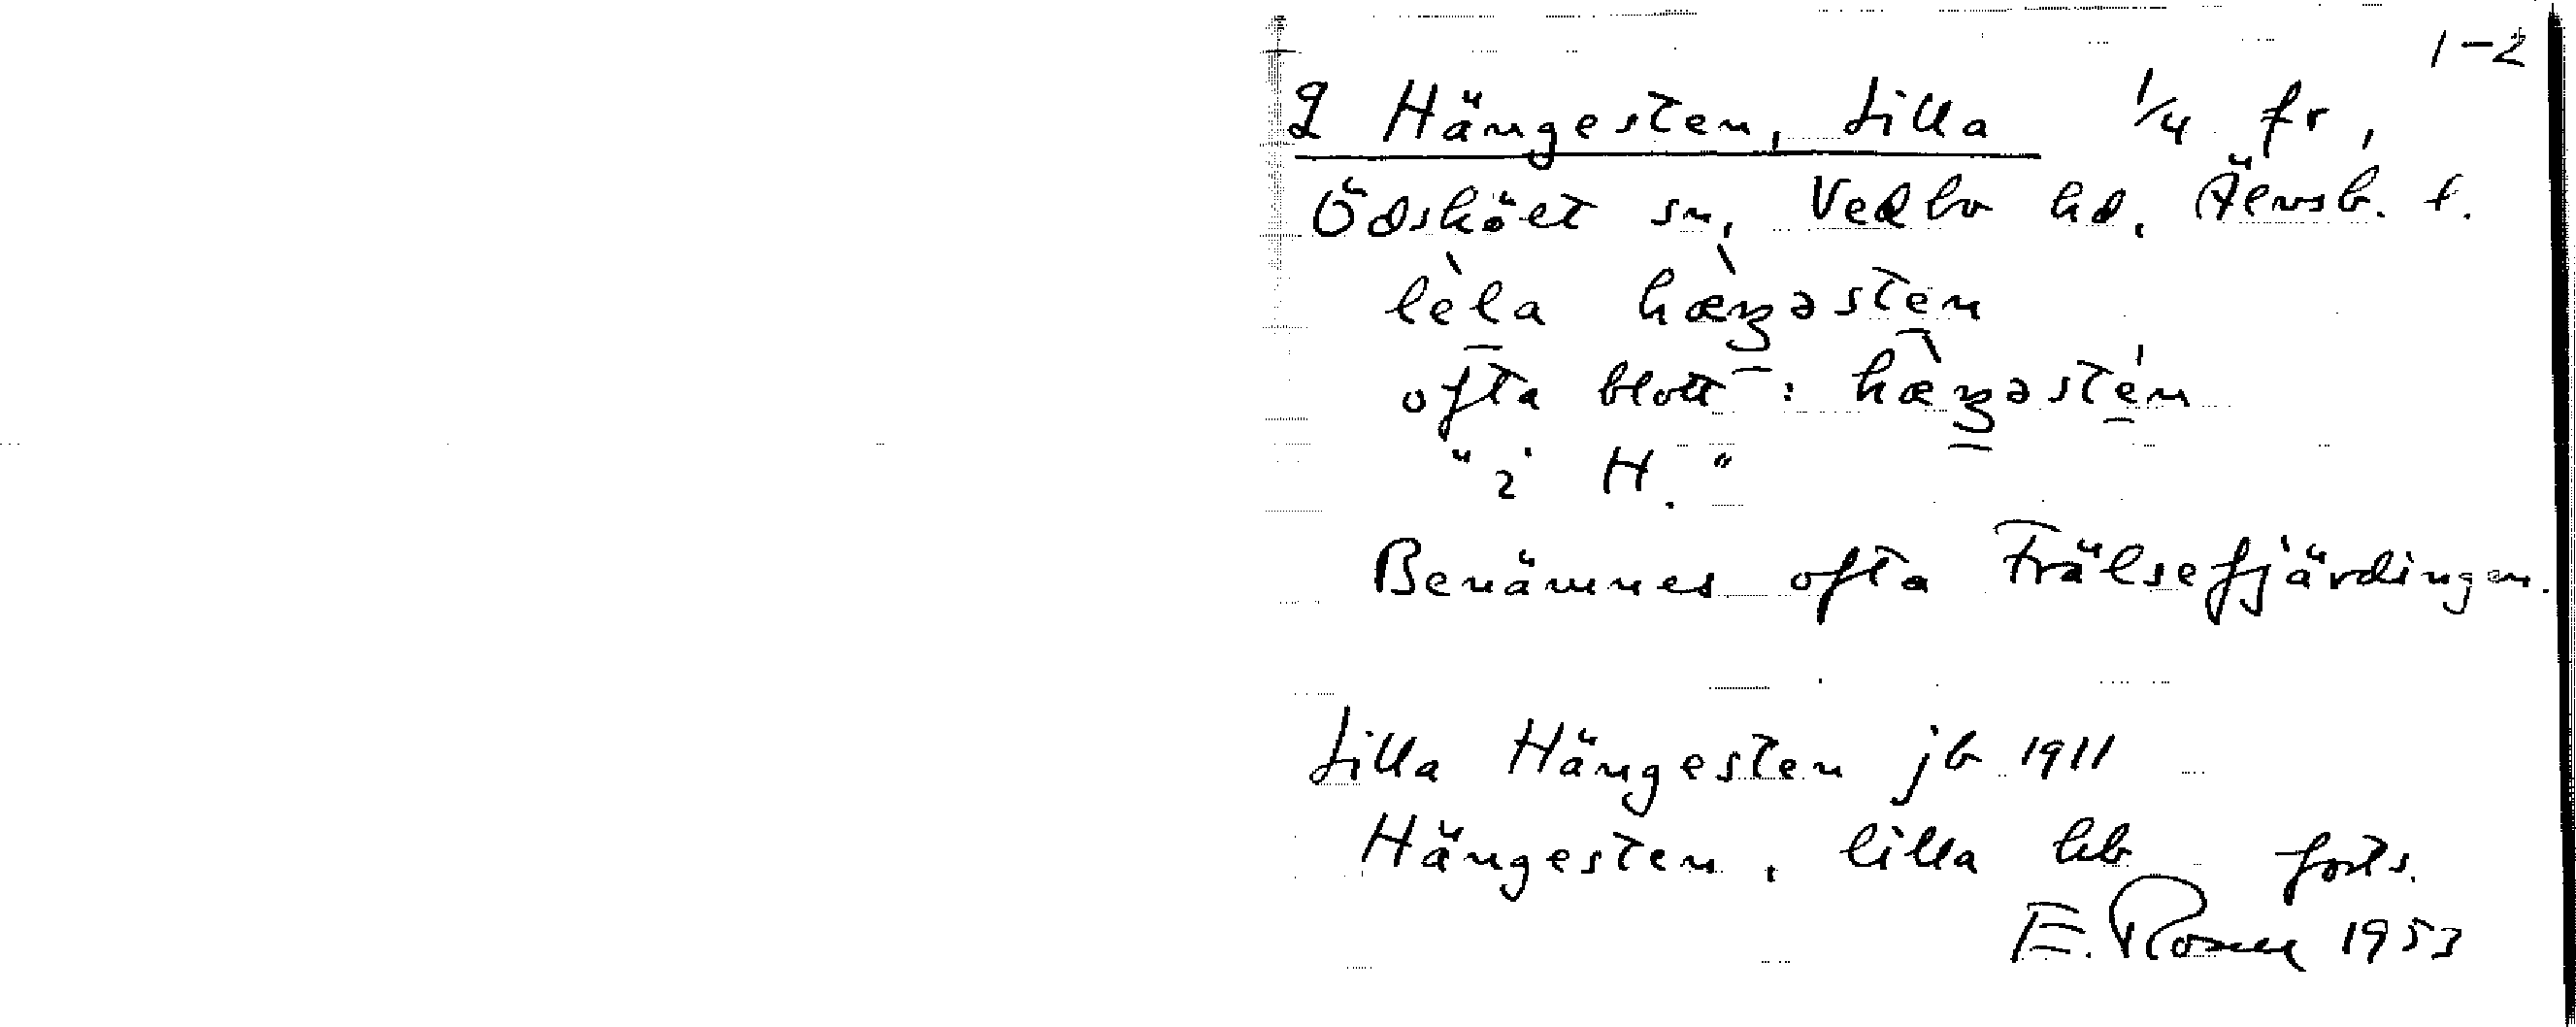 1-2
2 Hängesten, Lilla ¼ fr,
Ödskölt sn, Vedbo hd, Älvsb. l.
lèla hæŋəsten
ofta blott: hæŋəsten
"i H."
Benämnes ofta Frälsefjärdingen.
Lilla Hängesten jb 1911
Hängesten, lilla hb forts.
E. Rosell 1953